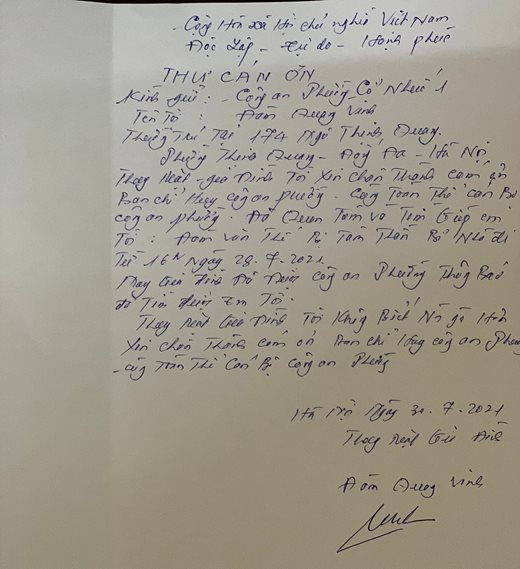 Cộng Hòa xã Hội chủ nghĩa Việt Nam
Độc Lập - Tự do - Hạnh phúc
THƯ CẢM ƠN
Kính gửi: - Công an Phường Cổ Nhuế 1
Tên Tôi: Đàm Quang Vinh
Thường Trú Tại 174 Ngõ Thịnh Quang.
Phường Thịnh Quang - Đống Đa - Hà Nội
Thay mặt gia Đình Tôi Xin Chân Thành cảm ơn
Ban chỉ Huy công an phường - Cùng Toàn Thể cán Bộ
công an phường. Đã Quan Tâm và Tìm Giúp em
Tôi: Đàm văn Thế Bị Tâm Thần Bỏ Nhà đi
Từ 16h Ngày 28.7.2021.
May Gia Đình Đã Được công an Phường Thông Báo
đã Tìm được Em Tôi.
Thay mặt Gia Đình Tôi Không Biết Nói gì Hơn
Xin chân Thành cảm ơn Ban chỉ Huy công an Phường
- cùng Toàn Thể Cán Bộ công an Phường
Hà Nội Ngày 30.7.2021
Thay mặt Gia Đình
Đàm Quang Vinh